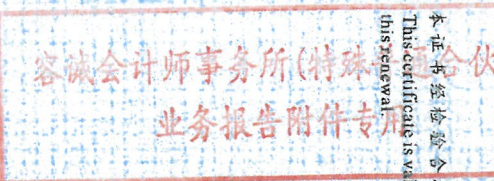 容诚会计师事务所(特殊普通合伙
业务报告附件专用
本证书经检验合
This certificate is va
this renewal.